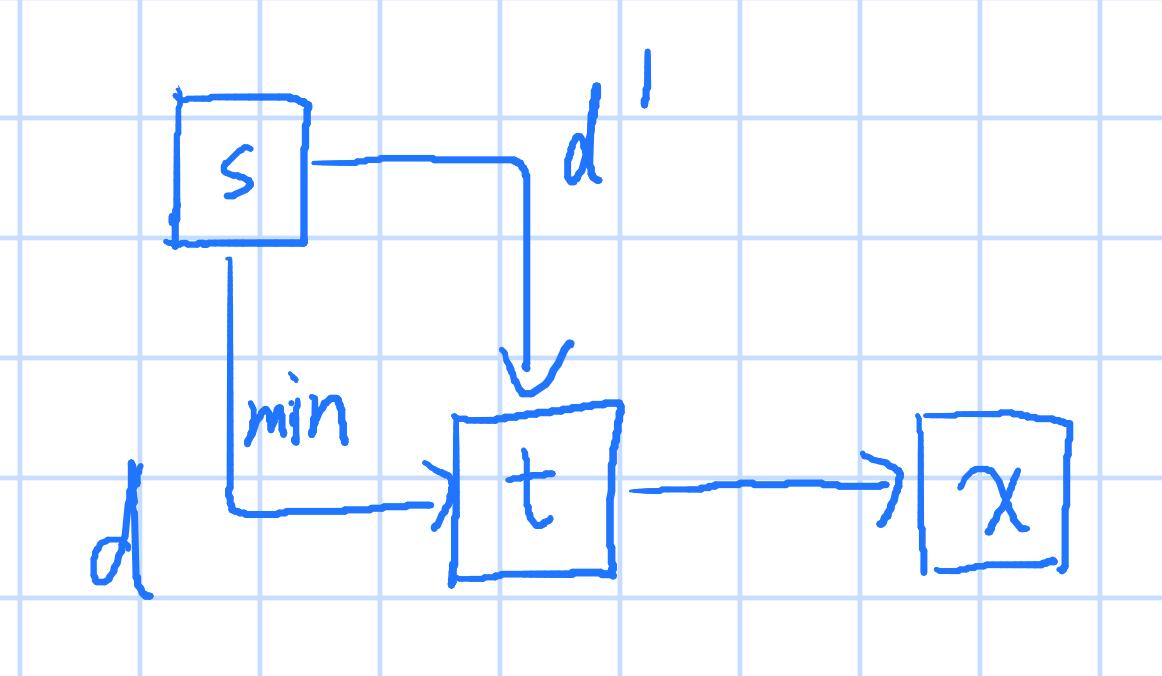 s
d'
min
d
t
x